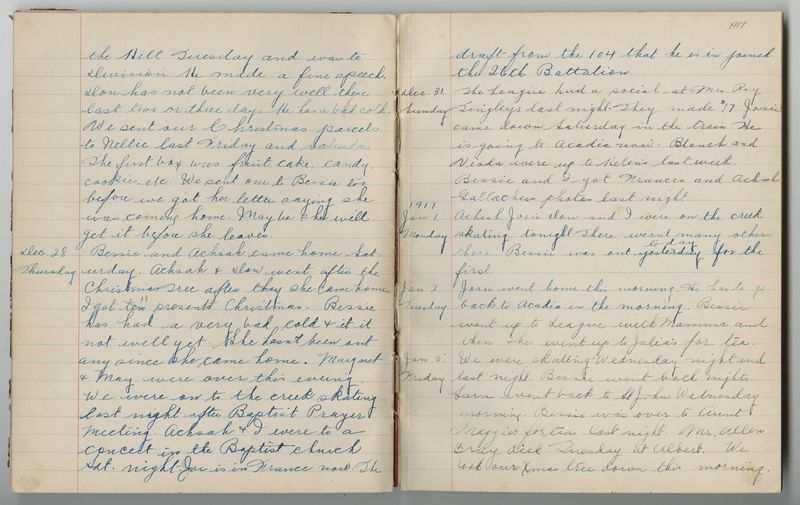 the Hill Tuesday and was to
Division He made a fine speech.
Don has not been very well these
last two or three days He has a bad cold.
We sent our Christmas parcels
to Nellie last Friday and Saturday
The first box was fruit cake, candy
cookies, etc. We sent one to Bessie too
before we got her letter saying she
was coming home Maybe she will
get it before she leaves.
Dec. 28 Bessie and Achsah came home Sat-
Thursday urday. Achsah & Don went after the
Christmas Tree after they she came home
I got ten presents Christmas. Bessie
has had a very bad cold & it it
not well yet She hasn't been out
any since she came home. Margaret
& May were over this evening.
We were on to the creek skating
last night after Baptist Prayer
Meeting. Achsah & I were to a
concert in the Baptist church
Sat. night Joe is in France now. The
1917
draft from the 104 that he is in joined
the 26th Battalion
Dec. 31. The League had a social at Mrs. Roy
Sunday Tingley's last night They made $17. Josie
came down Saturday in the train He
is going to Acadia now. Blanch and
were up to Helen's last week
Bessie and I got Frances and Achsah
Gallacher's photos last night
1917
Jan 1. Achsah Josie Don and I were on the creek
Monday skating tonight There weren't many others
there. Bessie was out yesterday to day for the
first
Jan 2 Josie went home this morning. He has to go
Tuesday back to Acadia in the morning. Bessie
went up to League with Mamma and
then she went up to Julia's for tea.
Jan 5. We were skating Wednesday night and
Friday last night. Bessie went both nights
went back to St John Wednesday
morning. Bessie was over to Aunt
Maggie's to tea last night. Mr. Allen
died Tuesday at Albert. We
took our Xmas tree down this morning.